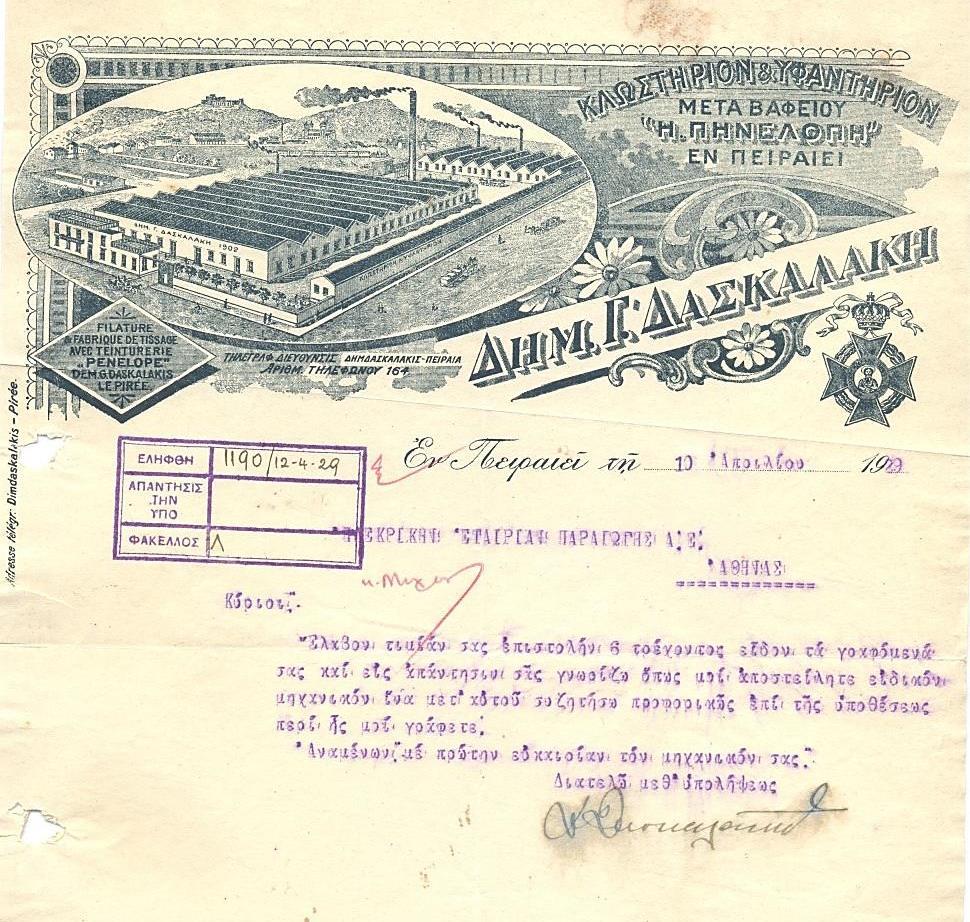 ΚΛΩΣΤΗΡΙΟΝ & ΥΦΑΝΤΗΡΙΟΝ
ΜΕΤΑ ΒΑΦΕΙΟΥ
"Η. ΠΗΝΕΛΟΠΗ"
ΕΝ ΠΕΙΡΑΙΕΙ
ΔΗΜ. Γ. ΔΑΣΚΑΛΑΚΗ 1902
ΔΗΜ. Γ. ΔΑΣΚΑΛΑΚΗ
FILATURE
& FABRIQUE DE TISSAGE
AVEC TEINTURERIE
"PENELOPE"
DEM. G. DASKALAKIS
LE PIRÉE.
ΤΗΛΕΓΡΑΦ. ΔΙΕΥΘΥΝΣΙΣ ΔΗΜΔΑΣΚΑΛΑΚΙΣ-ΠΕΙΡΑΙΑ
ΑΡΙΘΜ. ΤΗΛΕΦΩΝΟΥ 164
Adresse télégr: Dimdaskalakis - Pirée.
ΕΛΗΦΘΗ 1190/12-4-29
ΑΠΑΝΤΗΣΙΣ
ΤΗΝ
ΥΠΟ
ΦΑΚΕΛΛΟΣ Λ
Ἐν Πειραιεῖ τῇ 10 Ἀπριλίου 1929
ΕΤΑΙΡΙΑΝ ΠΑΡΑΓΩΓΗΣ Α.Ε.
ἈΘΗΝΑΣ
Κύριοι.
Ἔλαβον τιμίαν σας ἐπιστολήν 6 τρέχοντος εἶδον τά γραφόμενά
σας καί εἰς ἀπάντησιν σᾶς γνωρίζω ὅπως μοί ἀποστείλητε εἰδικόν
μηχανικόν ἵνα μετ' αὐτοῦ συζητήσω προφορικῶς ἐπί τῆς ὑποθέσεως
περί ἧς μοί γράφετε.
Ἀναμένων μέ πρώτην εὐκαιρίαν τόν μηχανικόν σας.
Διατελῶ μεθ' ὑπολήψεως